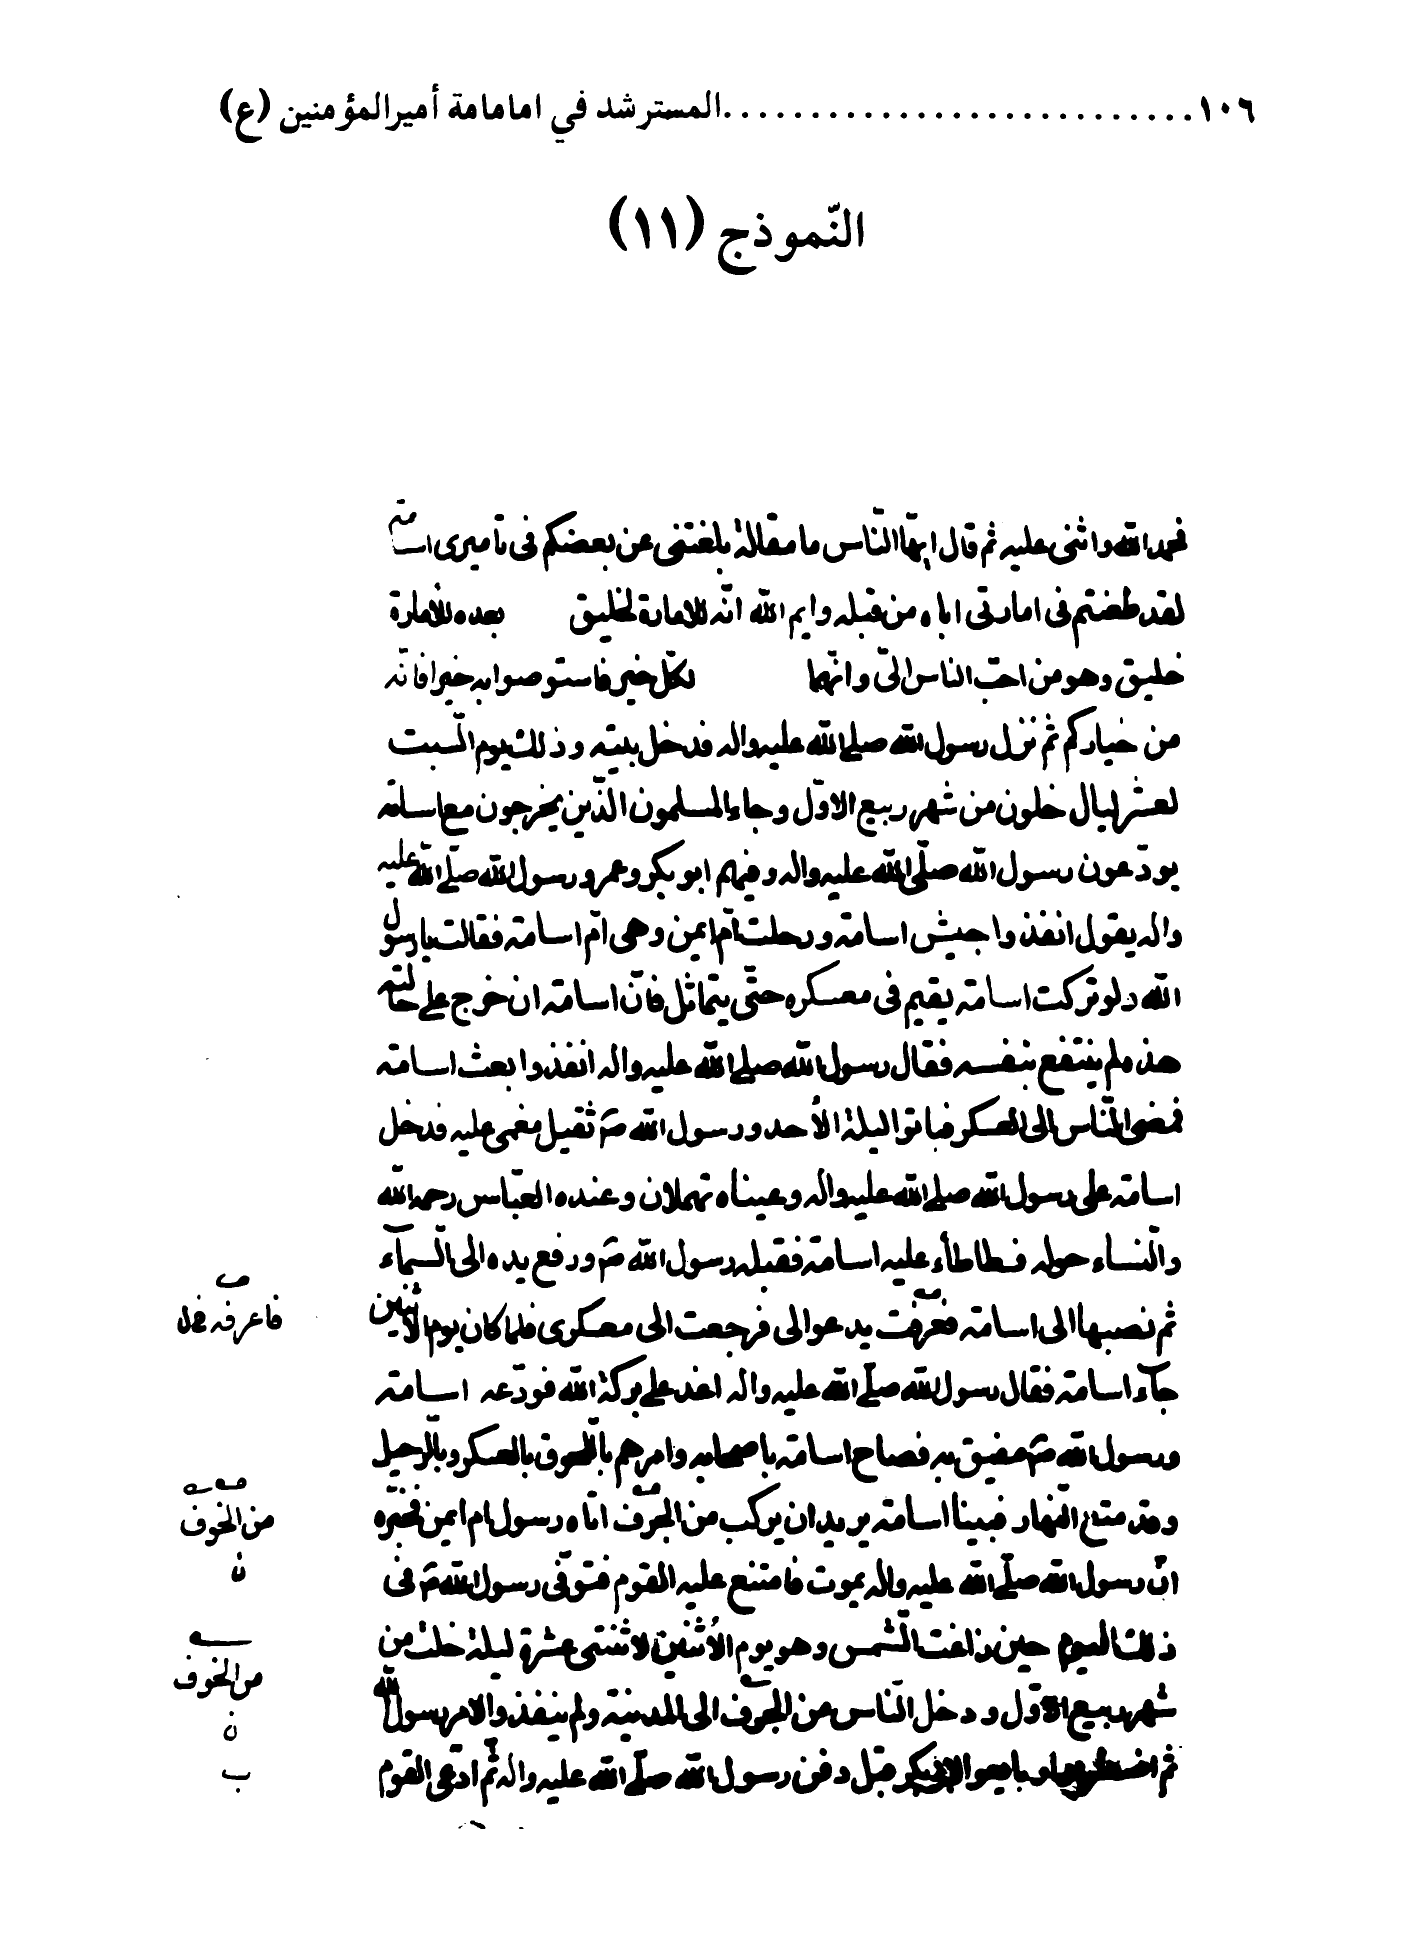 ١٠٦..........................المسترشد في امامامة أميرالمؤمنين (ع)
النّموذج (١١)
فحمد الله واثنى عليه ثم قال ايّها النّاس ما مقالة بلغتنى عن بعضكم فى تاميرى اسامة
لقد طعنتم فى امارتى اباه من قبله وايم الله انّه للامارة لخليق بعده للأمارة
خليق وهو من احبّ الناس الىّ وانّهما لكلّ خير فاستوصوا به خيرا فانّه
من خياركم ثم نزل رسول الله صلى الله عليه واله فدخل بيته وذلك يوم السّبت
لعشر ليال خلون من شهر ربيع الاوّل وجاء المسلمون الذّين يخرجون مع اسامة
يودّعون رسول الله صلّى الله عليه واله وفيهم ابو بكر وعمر ورسول الله صلّى الله عليه
واله يقول انفذوا جيش اسامة ودخلت امّ ايمن وهى امّ اسامة فقالت يا رسول
الله لو تركت اسامة يقيم فى معسكره حتّى يتماثل فانّ اسامة ان خرج على حالته
هذه لم ينتفع بنفسه فقال رسول الله صلى الله عليه واله انفذوا بعث اسامة
فمضى النّاس الى العسكر فباتوا ليلة الأحد ورسول الله ص ثقيل مغمى عليه فدخل
اسامة على رسول الله صلى الله عليه واله وعيناه تهملان وعنده العبّاس رحمه الله
والنّساء حوله فطاطأ عليه اسامة فقبله رسول الله ص ورفع يده الى السّمآء
ثم نصبها الى اسامة فعرفت يدعو الى فرجعت الى معسكرى فلما كان يوم الاثنين
جآء اسامة فقال رسول الله صلّى الله عليه واله اغد على بركة الله فودّعه اسامة
ورسول الله ص مفيق به فصاح اسامة باصحابه وامرهم باللّحوق بالعسكر وبالرّحيل
وقد متع النّهار فبينا اسامة يريد ان يركب من الجرف اتاه رسول ام ايمن فخبّره
انّ رسول الله صلّى الله عليه واله يموت فامتنع عليه القوم فتوفّى رسول الله ص فى
ذلك اليوم حين زاغت الشّمس وهو يوم الأثنين لاثنتى عشرة ليلة خلت من
شهر ربيع الاوّل ودخل النّاس من الجرف الى المدينة ولم ينفذوا لامر رسول الله
ثم وبايعوا لابى بكر قبل دفن رسول الله صلّى الله عليه واله ثمّ ادّعى القوم
من الخوف
ن
من الخوف
ن
ب